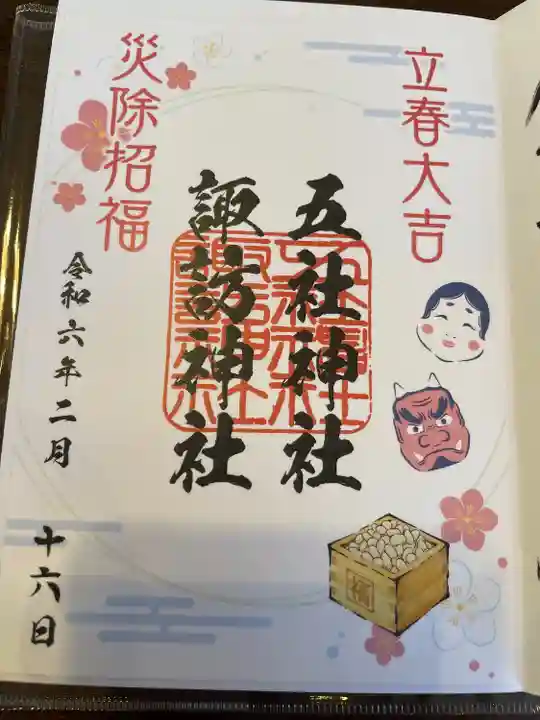 立春大吉
五社神社
諏訪神社
災除招福
令和六年二月
十六日
福